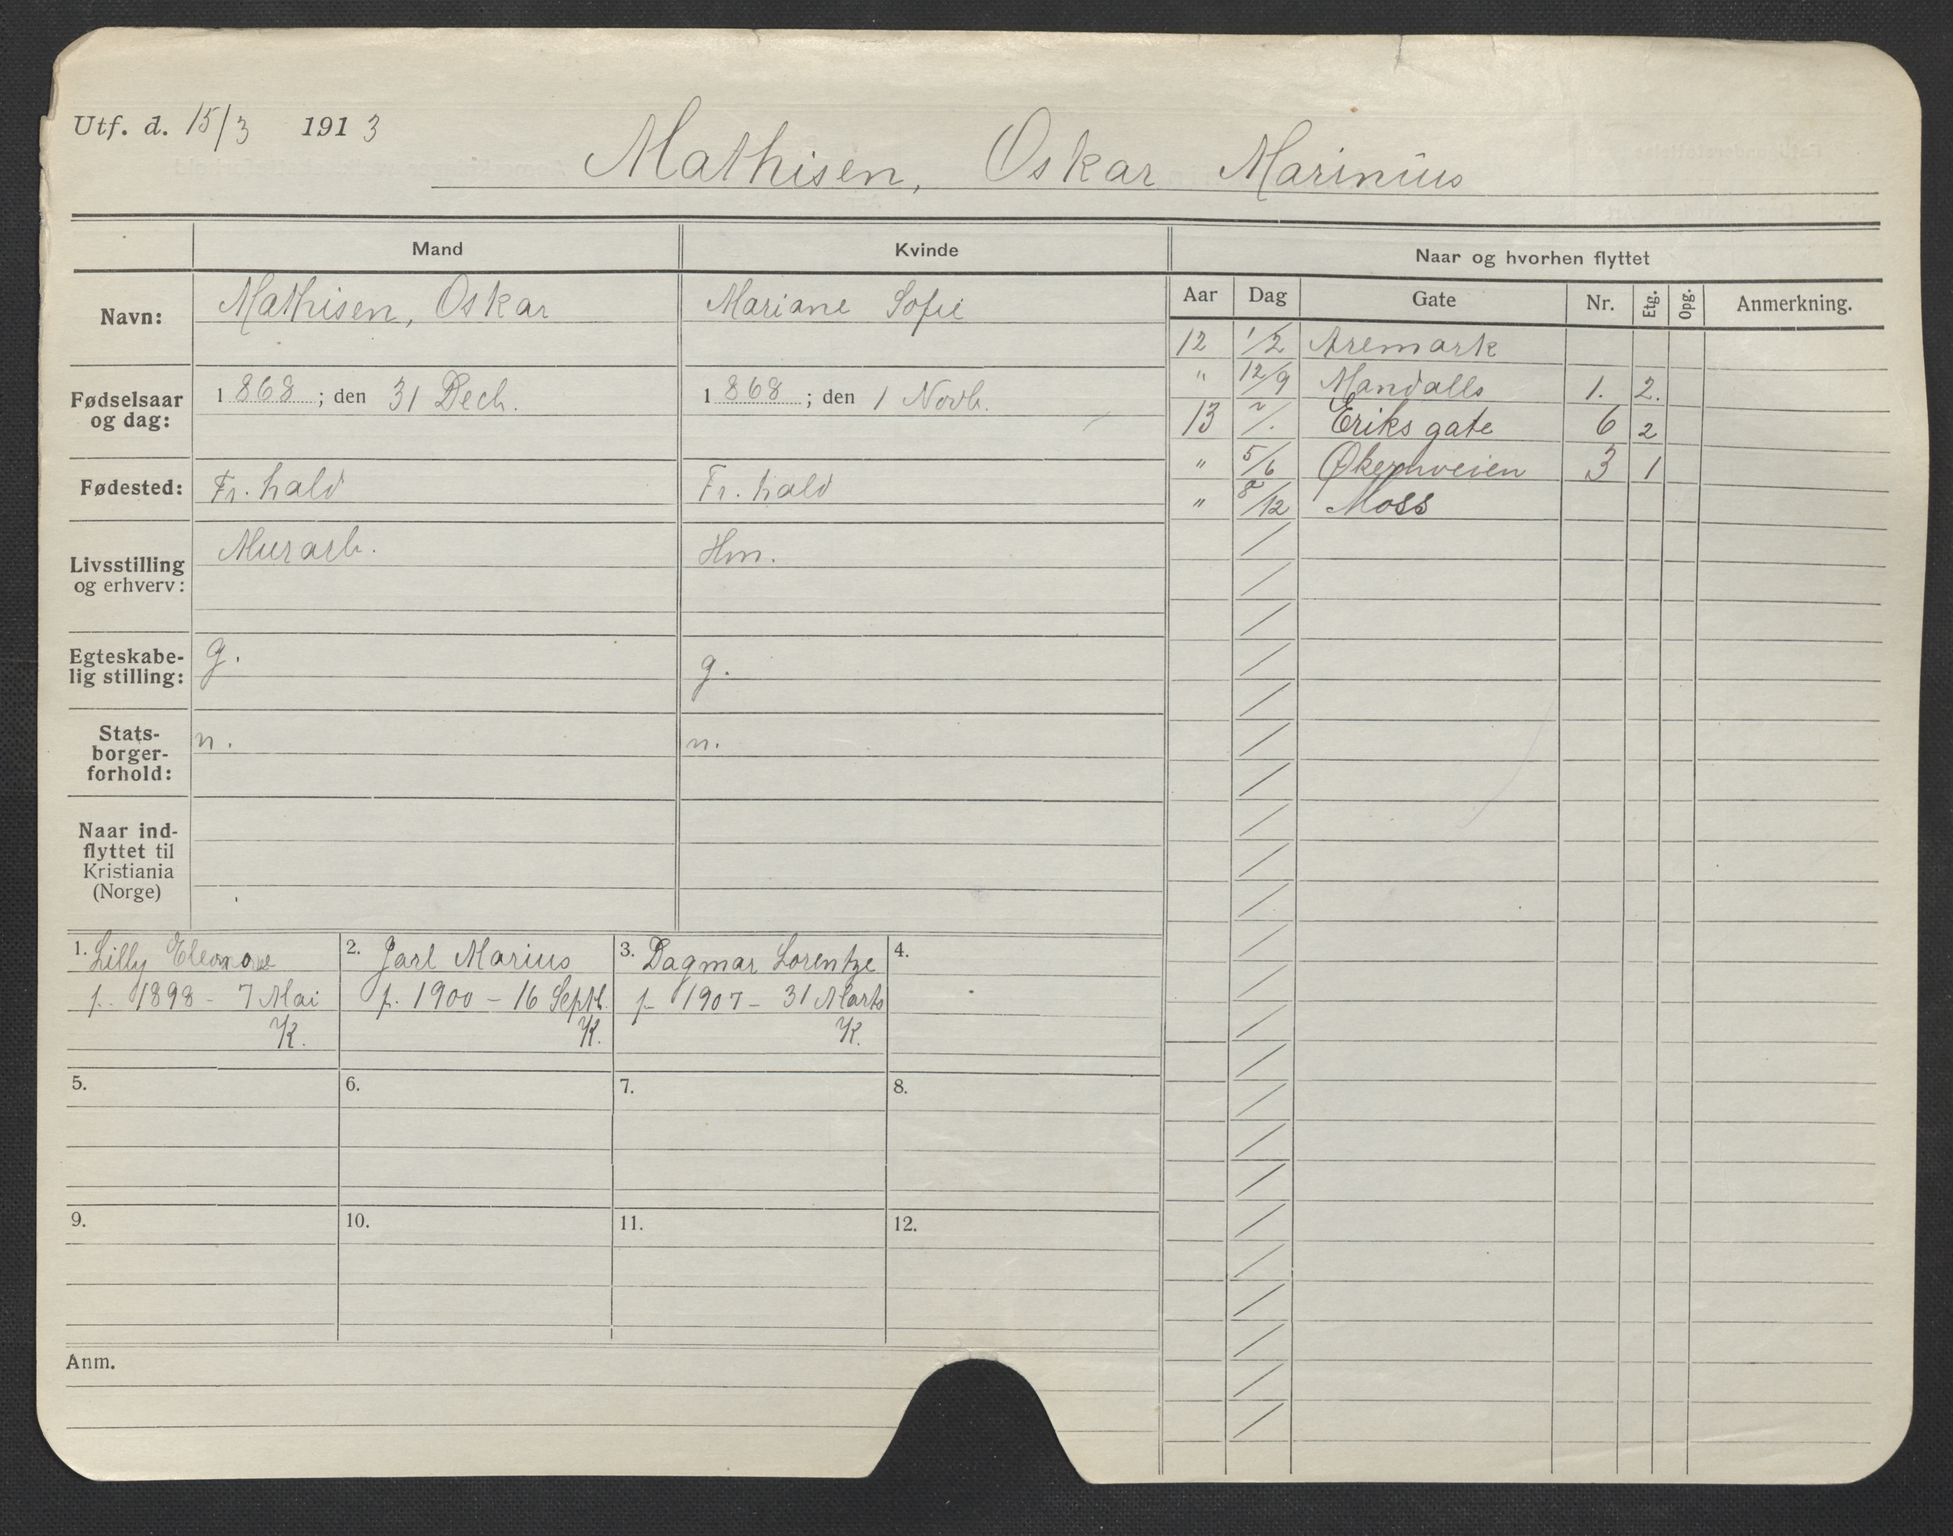 Utf. d. 15/3 1913
Mathisen, Oskar Marinius
Mand
Kvinde
Naar og hvorhen flyttet
Navn: Mathisen, Oskar
Mariane Sofie
Fødselsaar og dag: 1868; den 31 Dech.
1868; den 1 Novb.
Fødested: Fr. hald
Fr. hald
Livsstilling og erhverv: Murarb.
Hm.
Egteskabe-
lig stilling: g.
g.
Stats-
borger-
forhold: n.
n.
Naar ind-
flyttet til
Kristiania
(Norge)
Aar Dag Gate Nr. Etg. Opg. Anmerkning.
12 1/2 Aremark
" 12/9 Mandalls 1. 2.
13 Eriks gate 6 2
" 5/6 Økernveien 3 1
" 8/12 Moss
1. Lilly Eleonore
f. 1898 - 7 Mai
K.
2. Jarl Marius
f. 1900 - 16 Septb.
K.
3. Dagmar Lorentze
f. 1907 - 31 Marts
K.
4.
5.
6.
7.
8.
9.
10.
11.
12.
Anm.